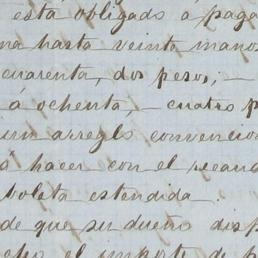 está obligado á paga
na hasta veinte manos
cuarenta, dos pesos; —
á ochenta, — cuatro p
un arreglo convencio
á hacer con el recaud
boleta estendida.
de que su dueño disp
cho el importe de p